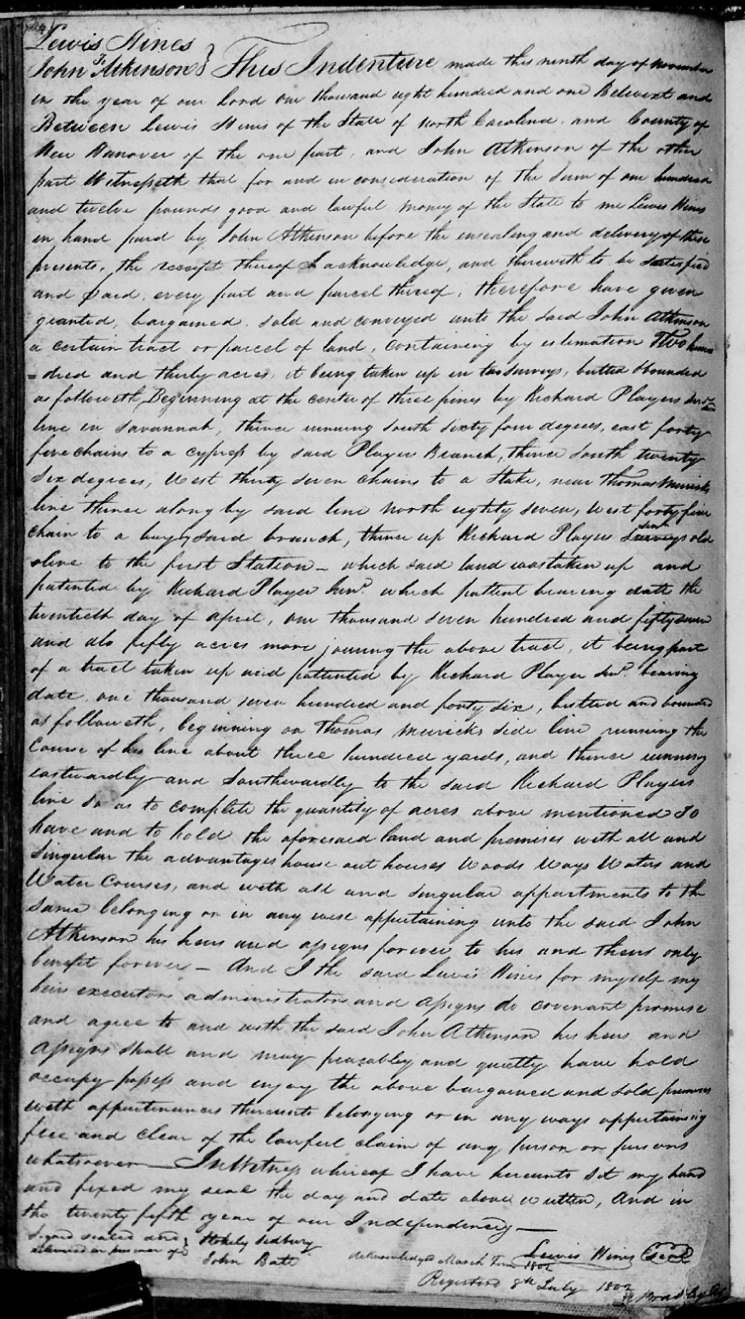 Lewis Hines
To
John Atkinson } This Indenture made this ninth day of November
in the year of our Lord one thousand eight hundred and one Betwixt and
Between Lewis Hines of the State of North Carolina and County of
New Hanover of the one part, and John Atkinson of the other
part Witnesseth that for and in consideration of the Sum of one hundred
and twelve pounds good and lawful money of the State to me Lewis Hines
in hand paid by John Atkinson before the ensealing and delivery of these
presents, the receipt thereof I acknowledge, and therewith to be satisfied
and paid, every part and parcel thereof, therefore have given
granted, bargained, sold and conveyed unto the said John Atkinson
a certain tract or parcel of land, Containing by estimation Two hun
=dred and thirty acres, it being taken up in two surveys, butted & bounded
as followeth, Beginning at the center of three pines by Richard Players
line in Savannah, thence running South Sixty four degrees, east forty
five chains to a cypress by said Players Branch, thence South twenty
Six degrees, West thirty Seven Chains to a Stake, near Thomas Muricks
line thence along by said line North eighty seven, West forty five
chain to a said branch, thence up Richard Players old
line to the first Station – which said land was taken up and
patented by Richard Player Senr. which patent bearing date the
twentieth day of April, one thousand seven hundred and fifty seven
and also fifty acres more joining the above tract, it being part
of a tract taken up and patented by Richard Player Senr. bearing
date, one thousand seven hundred and forty six, butted and bounded
as followeth, beginning on Thomas Muricks side line running the
Course of his line about three hundred yards, and thence running
eastwardly and Southwardly to the said Richard Players
line so as to complete the quantity of acres above mentioned To
have and to hold the aforesaid land and premises with all and
Singular the advantages house out houses Woods Ways Waters and
Water Courses, and with all and singular appurtments to the
same belonging or in any wise appertaining unto the said John
Atkinson his heirs and assigns forever to his and theirs only
benefit forever – And I the said Lewis Hines for myself my
heirs executors administrators and assigns do covenant promise
and agree to and with the said John Atkinson his heirs and
Assigns shall and may peaceably and quietly have hold
occupy possess and enjoy the above bargained and sold premises
with appurtenances thereunto belonging or in any ways appertaining
free and clear of the lawful claim of any person or persons
whatsoever – In Witness whereof I have hereunto Set my hand
and fixed my seal the day and date above written, And in
the twenty fifth year of our Independency –
Signed sealed and
delivered in presence of } Stokely Sedbury
John Bate
Lewis Hines Seal
Acknowledged March Term 1802
Registered 8th July 1802